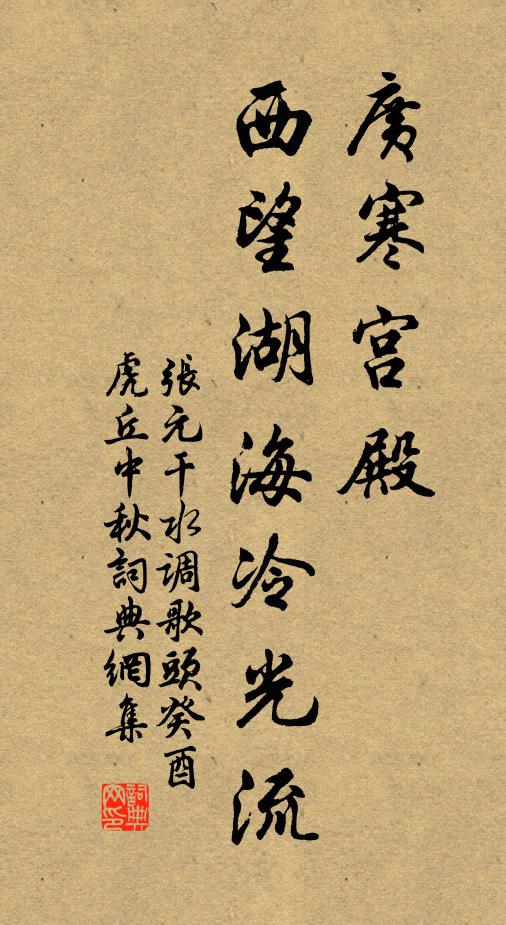 廣寒宫殿
西望湖海冷光流
張元干水调歌頭癸酉
虎丘中秋詞典網集
詞典
网印